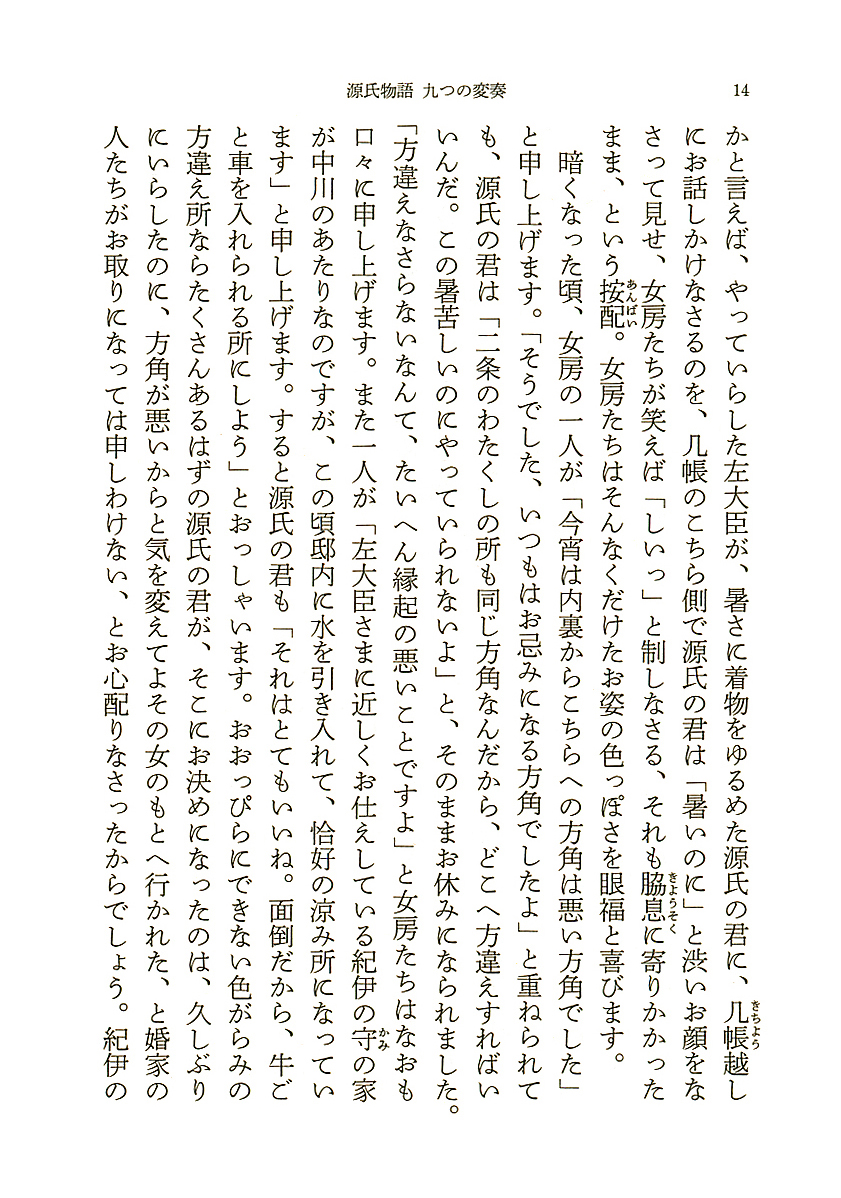 源氏物語 九つの変奏
14
かと言えば、やっていらした左大臣が、暑さに着物をゆるめた源氏の君に、几帳越し
きちよう
にお話しかけなさるのを、几帳のこちら側で源氏の君は「暑いのに」と渋いお顔をな
さって見せ、女房たちが笑えば「しいっ」と制しなさる、それも脇息に寄りかかった
きようそく
まま、という按配。女房たちはそんなくだけたお姿の色っぽさを眼福と喜びます。
あんばい
暗くなった頃、女房の一人が「今宵は内裏からこちらへの方角は悪い方角でした」
と申し上げます。「そうでした、いつもはお忌みになる方角でしたよ」と重ねられて
も、源氏の君は「二条のわたくしの所も同じ方角なんだから、どこへ方違えすればい
いんだ。この暑苦しいのにやっていられないよ」と、そのままお休みになられました。
「方違えなさらないなんて、たいへん縁起の悪いことですよ」と女房たちはなおも
口々に申し上げます。また一人が「左大臣さまに近しくお仕えしている紀伊の守の家
かみ
が中川のあたりなのですが、この頃邸内に水を引き入れて、恰好の涼み所になってい
ます」と申し上げます。すると源氏の君も「それはとてもいいね。面倒だから、牛ご
と車を入れられる所にしよう」とおっしゃいます。おおっぴらにできない色がらみの
方違え所ならたくさんあるはずの源氏の君が、そこにお決めになったのは、久しぶり
にいらしたのに、方角が悪いからと気を変えてよその女のもとへ行かれた、と婚家の
人たちがお取りになっては申しわけない、とお心配りなさったからでしょう。紀伊の